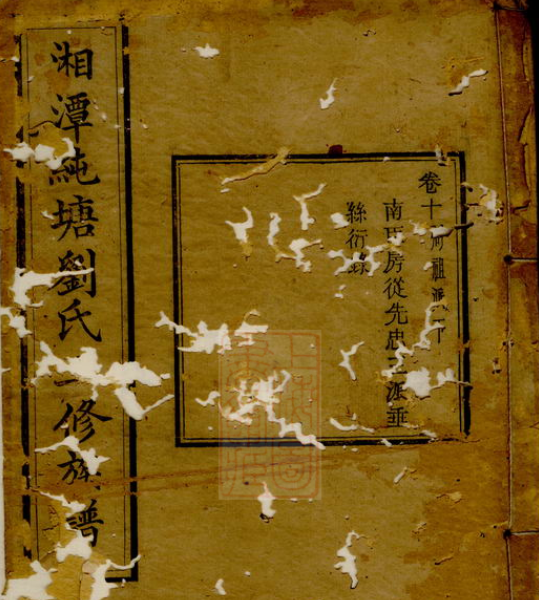 湘潭純塘劉氏二修族譜
卷十 祖派下
南 房從先忠 派垂
絲衍錄